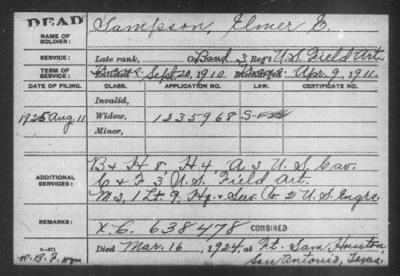 DEAD
NAME OF SOLDIER: Sampson, Elmer G.
SERVICE: Late rank, Co Band 3 Reg't U.S. Field Art.
TERM OF SERVICE: Enlisted Sept. 20, 1910. Discharged Apr. 9, 1911.
DATE OF FILING. CLASS. APPLICATION NO. LAW. CERTIFICATE NO.
Invalid,
1925 Aug. 11 Widow, 1235968
Minor,
ADDITIONAL SERVICES: B & H 8, H 4, A 3 U.S. Cav.
C & F 3, U.S. Field Art.
M 3, 1 Lt. 9, Hq. & Serv. Co 2 U.S. Engrs.
REMARKS: X.C. 638478 COMBINED
Died Mar. 16, 1924, at Ft. Sam Houston,
San Antonio, Texas.